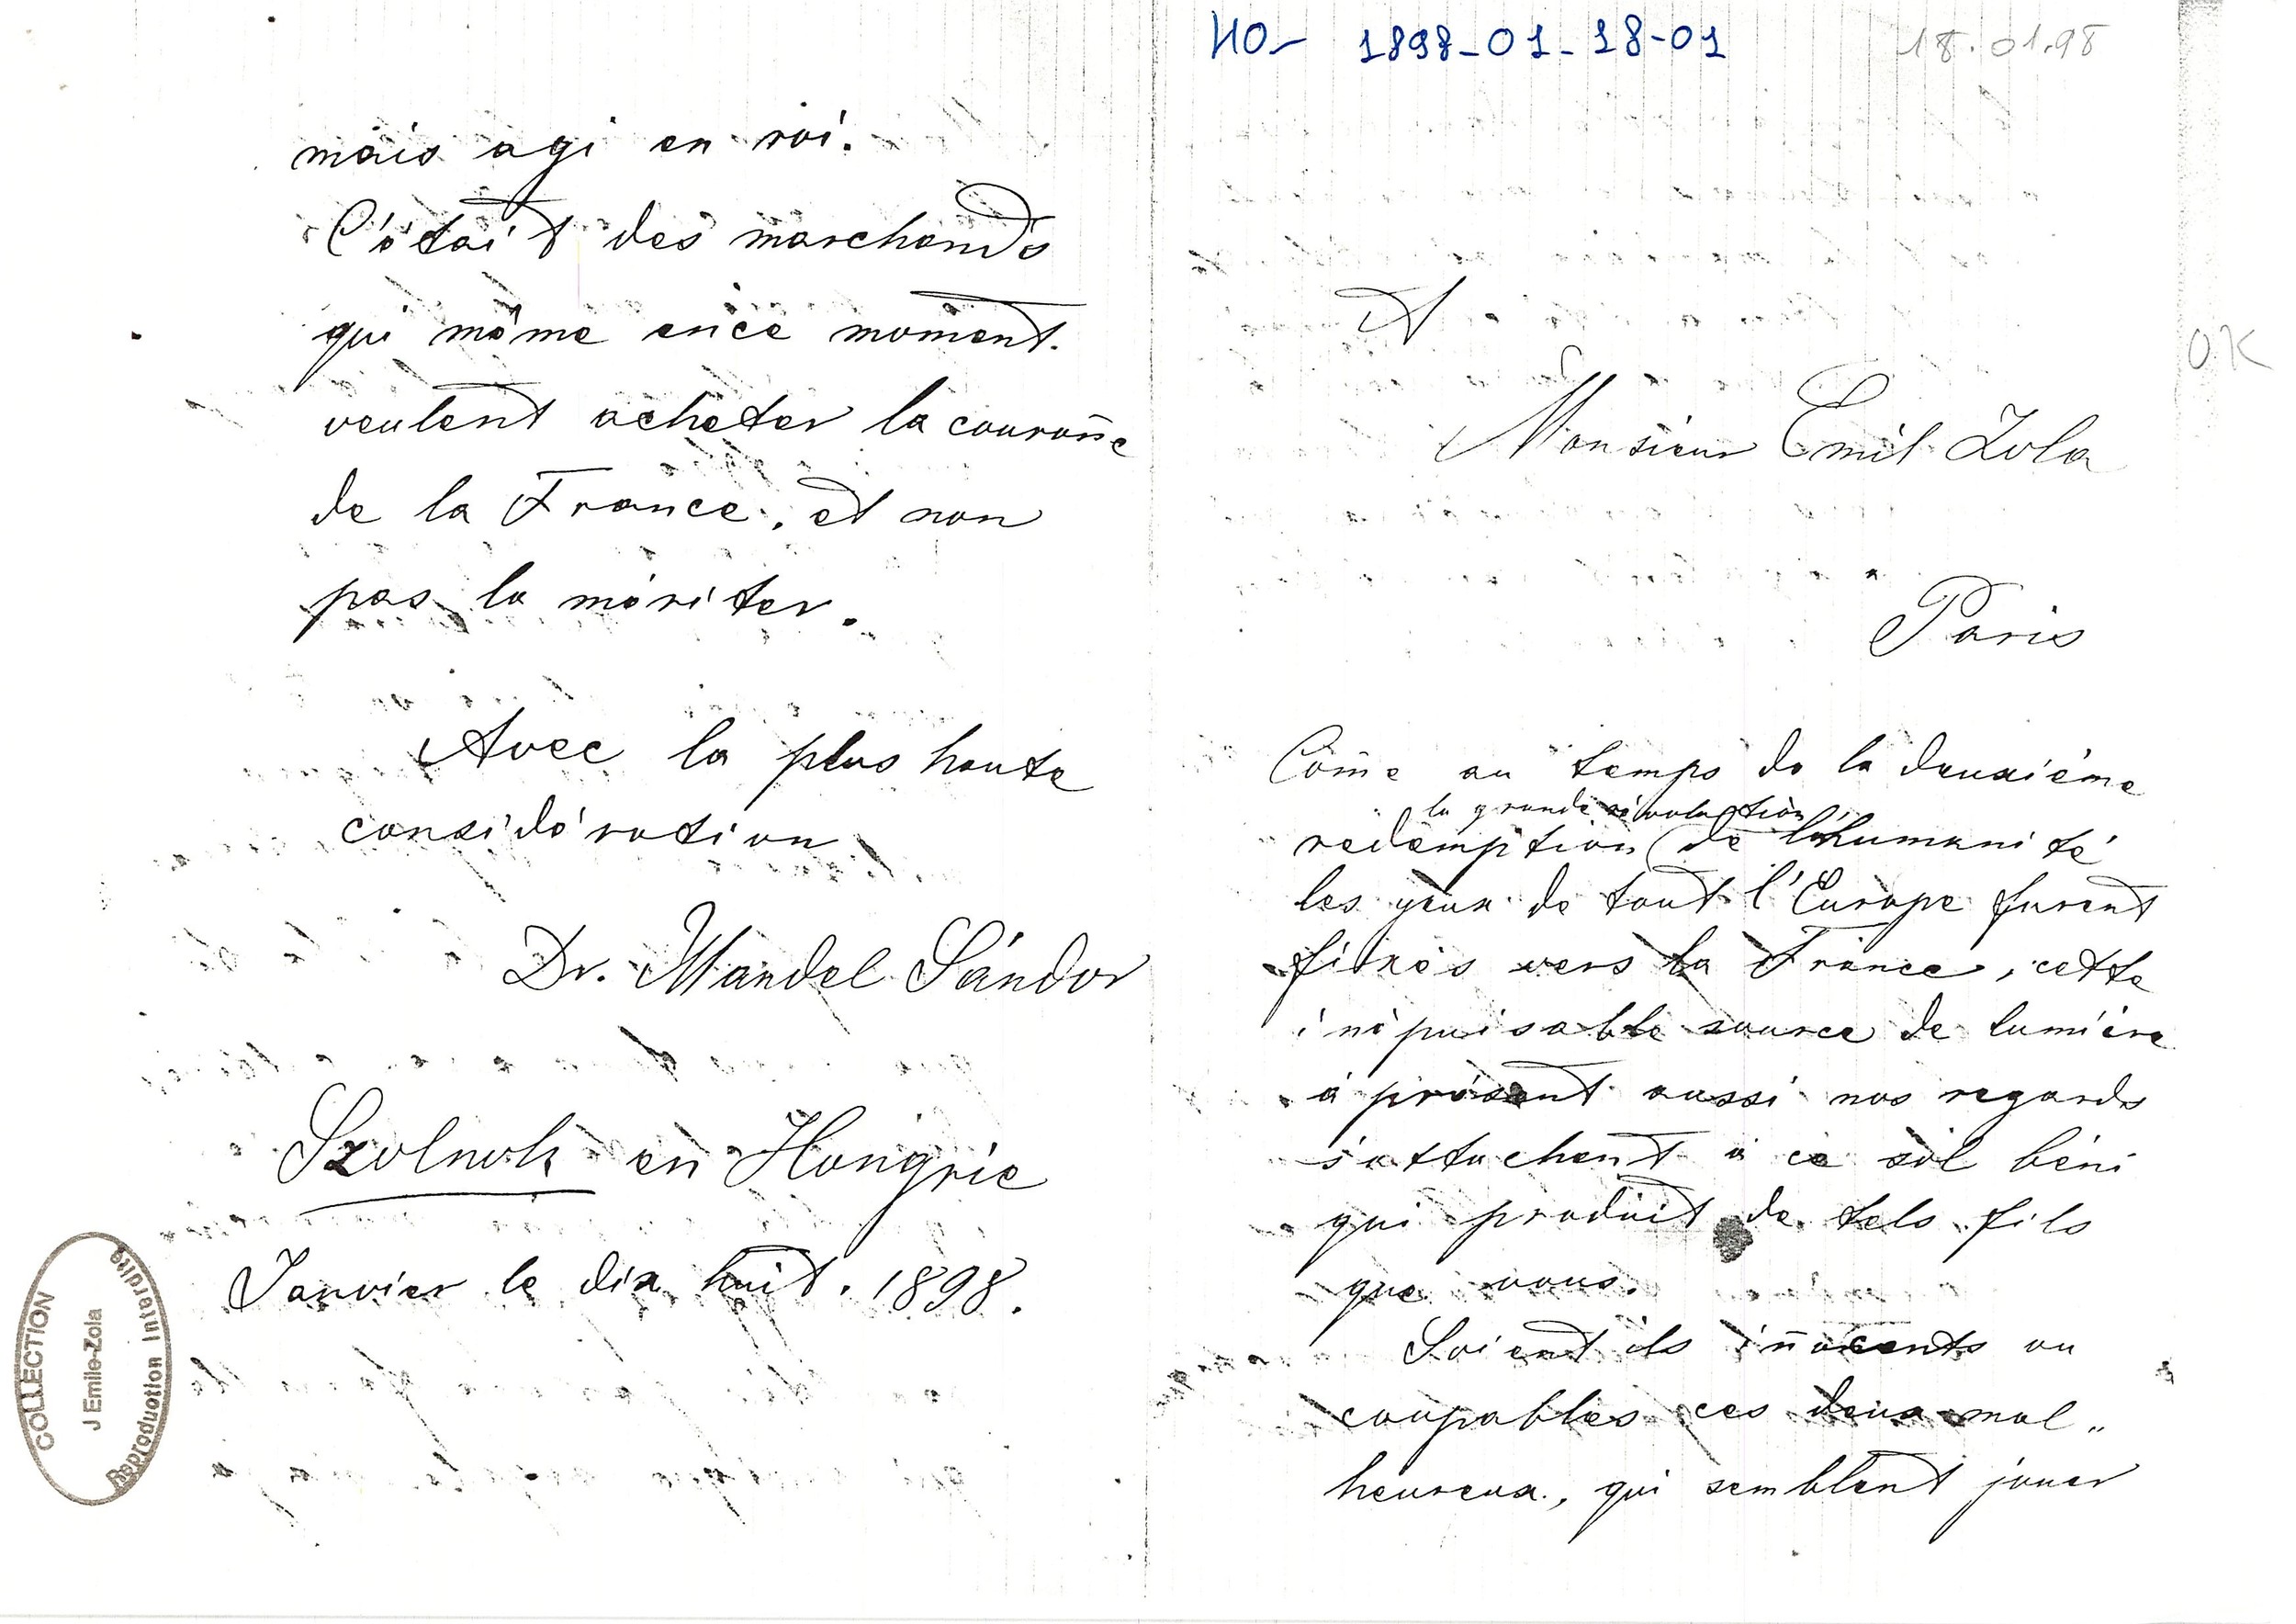 HO- 1898-01-18-01
18.01.98
OK
mais agi en roi.
C'était des marchands
qui même en ce moment
veulent acheter la couroñe
de la France, et non
pas la mériter.
Avec la plus haute
considération
Dr. Mandel Sándor
Szolnok en Hongrie
Janvier le dix huit. 1898.
COLLECTION
J Emile-Zola
Reproduction Interdite
A
Monsieur Emil Zola
Paris
Com̄e au temps de la deuxiéme
la grande révolution
redemption (de l'humanité
les yeux de tout l'Europe furent
fixés vers la France, cette
inépuisable source de lumière
á présent aussi nos regards
s'attachent á ce sol béni
qui produit de tels fils
que vous.
Soient ils iñocents ou
coupables ces deux mal„
heureux, qui semblent jouer